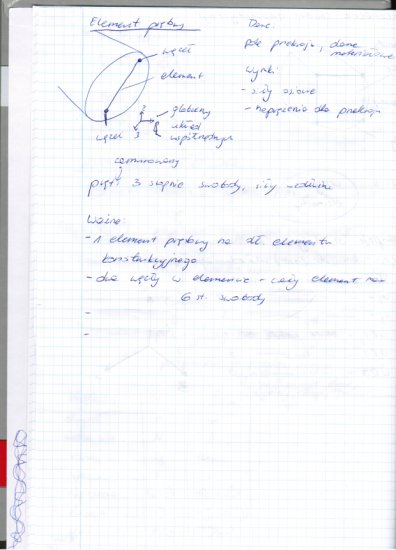 Element prętowy
węzeł
element
globalny
układ
współrzędnych
węzeł
3
2
Dane:
pole przekroju, dane
materiałowe
wyniki:
- siły osiowe
- naprężenia dla przekroju
3 stopnie swobody, siły
Ważne:
- 1 element prętowy na dł. elementu
konstrukcyjnego
- dwa węzły w elemencie - cały element ma
6 st. swobody
-
-